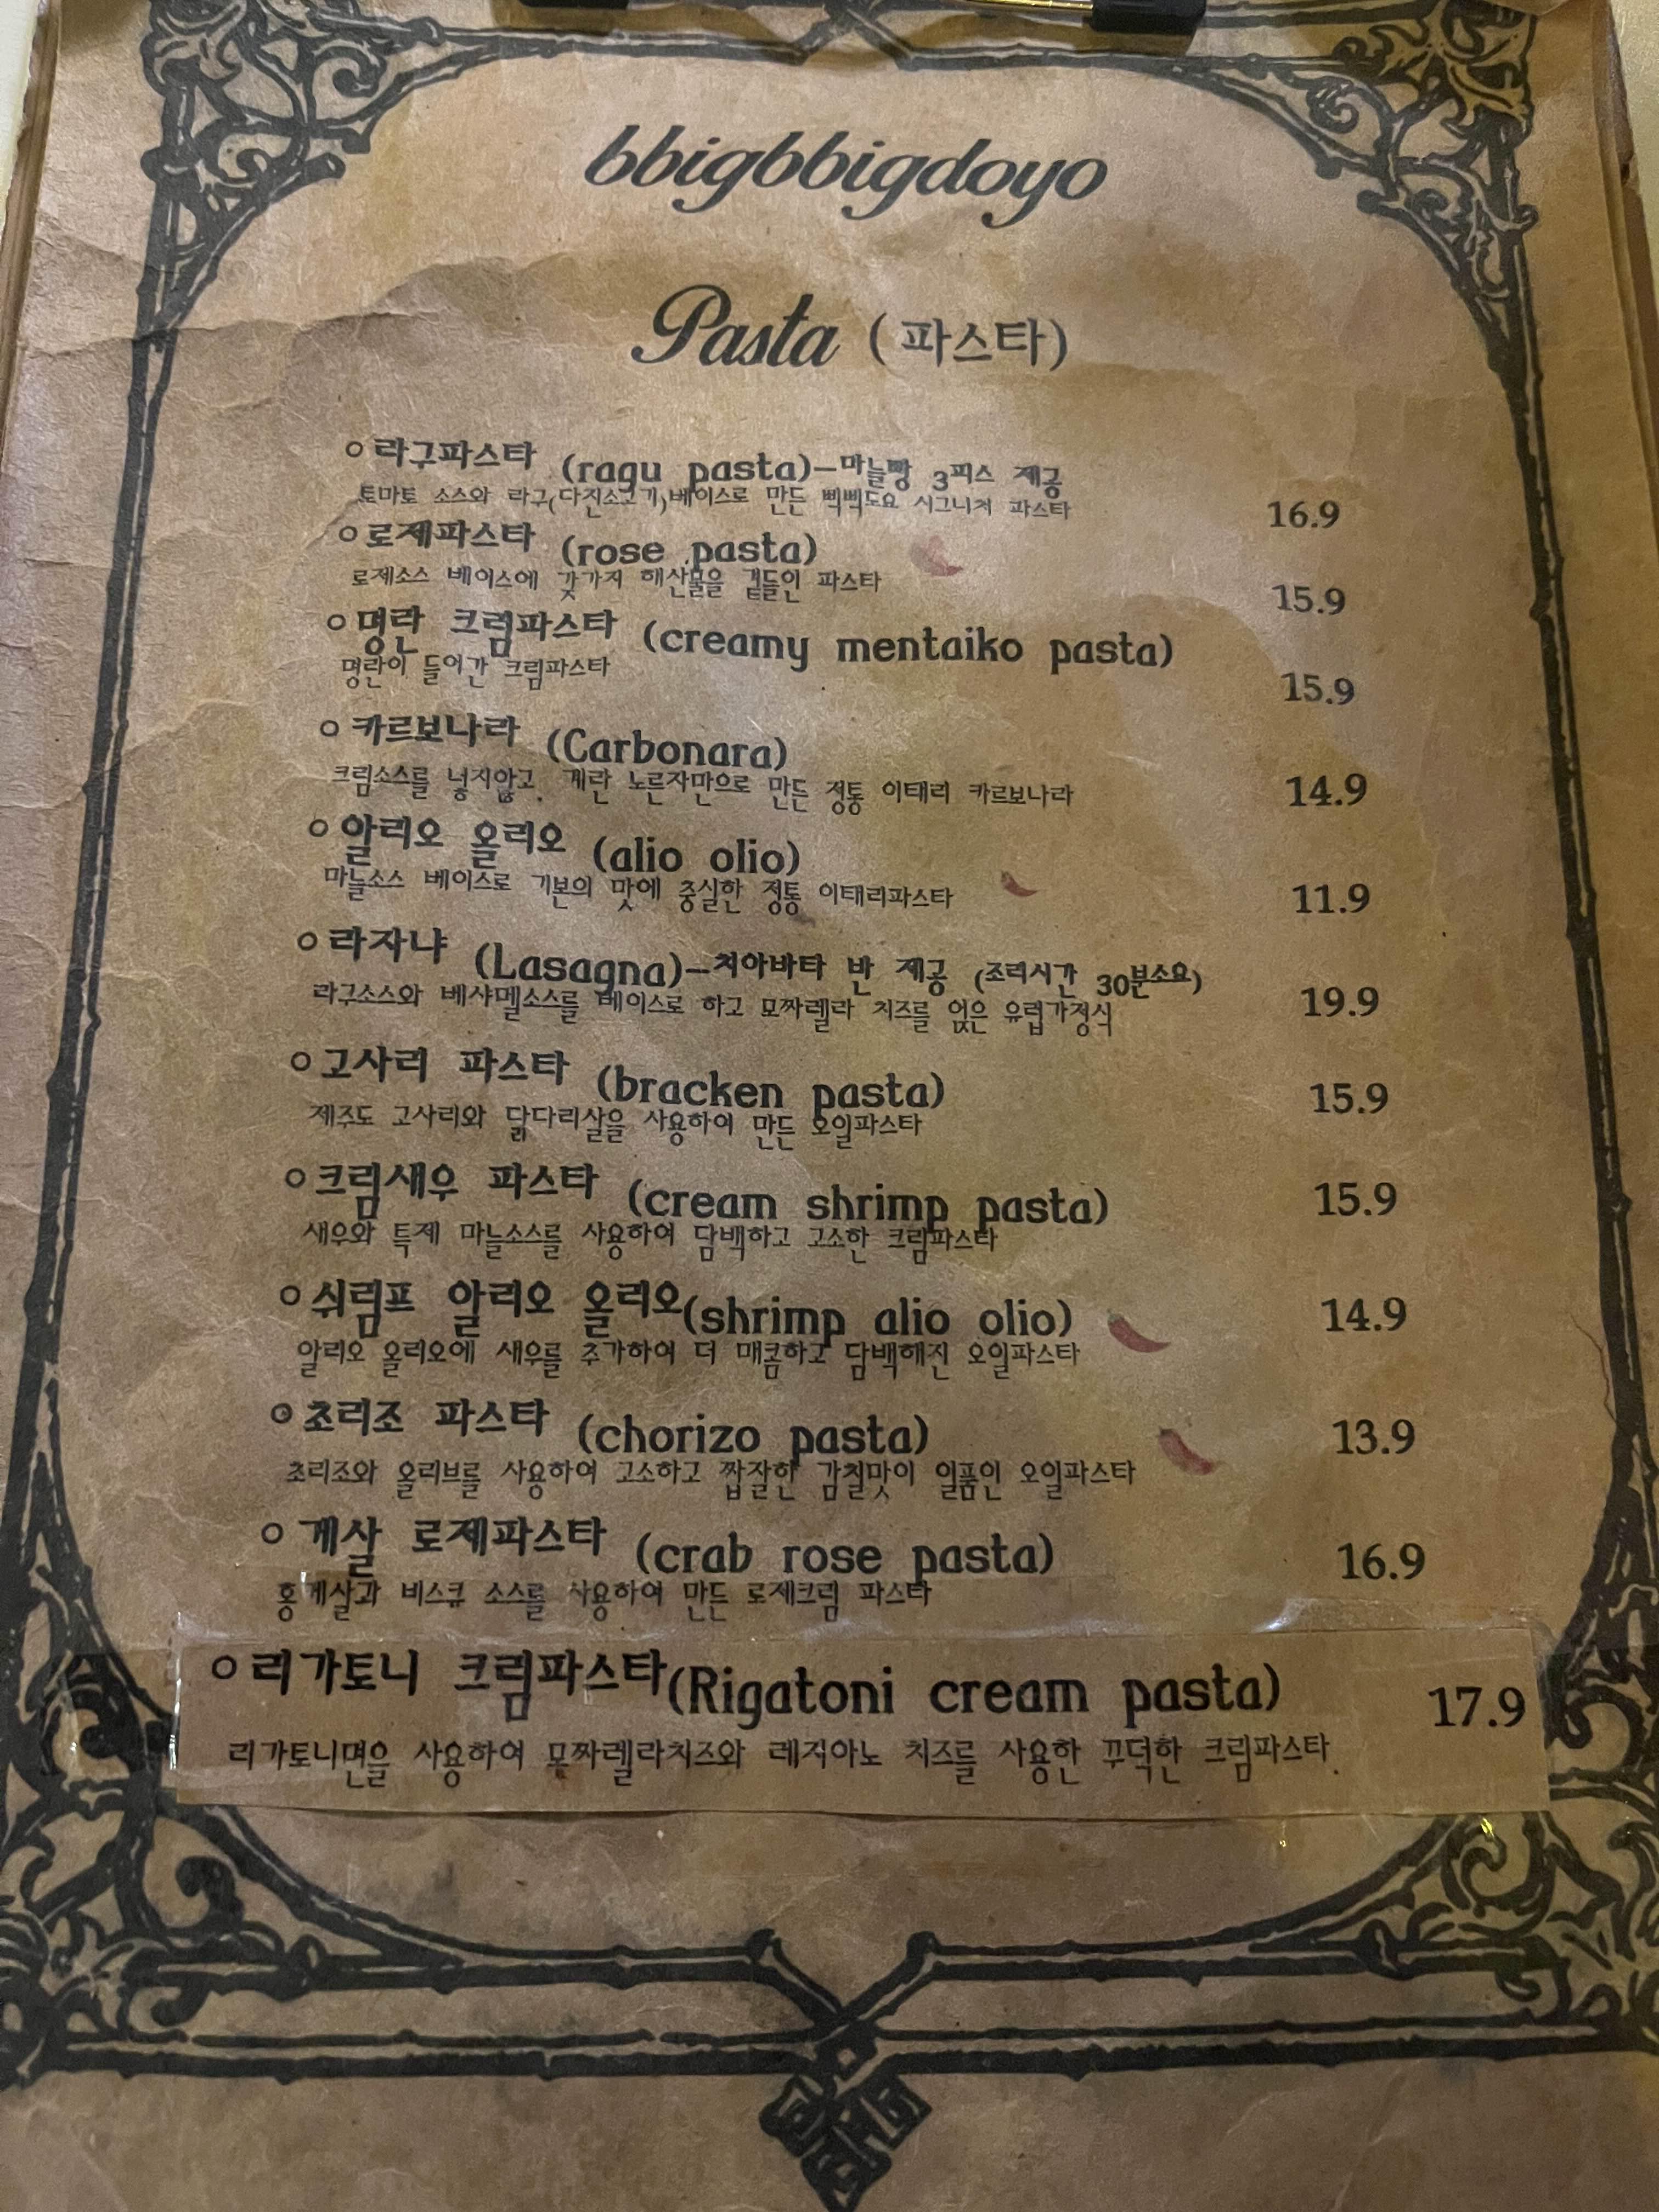 bbigbbigdoyo
Pasta (파스타)
○라구파스타 (ragu pasta)-마늘빵 3피스 제공
토마토 소스와 라구(다진소고기)베이스로 만든 삑삑도요 시그니처 파스타 16.9
○로제파스타 (rose pasta)
로제소스 베이스에 갖가지 해산물을 곁들인 파스타 15.9
○명란 크림파스타 (creamy mentaiko pasta)
명란이 들어간 크림파스타 15.9
○카르보나라 (Carbonara)
크림소스를 넣지않고, 계란 노른자만으로 만든 정통 이태리 카르보나라 14.9
○알리오 올리오 (alio olio)
마늘소스 베이스로 기본의 맛에 충실한 정통 이태리파스타 11.9
○라자냐 (Lasagna)-치아바타 반 제공 (조리시간 30분소요)
라구소스와 베샤멜소스를 베이스로 하고 모짜렐라 치즈를 얹은 유럽가정식 19.9
○고사리 파스타 (bracken pasta)
제주도 고사리와 닭다리살을 사용하여 만든 오일파스타 15.9
○크림새우 파스타 (cream shrimp pasta)
새우와 특제 마늘소스를 사용하여 담백하고 고소한 크림파스타 15.9
○쉬림프 알리오 올리오(shrimp alio olio)
알리오 올리오에 새우를 추가하여 더 매콤하고 담백해진 오일파스타 14.9
○초리조 파스타 (chorizo pasta)
초리조와 올리브를 사용하여 고소하고 짭잘한 감칠맛이 일품인 오일파스타 13.9
○게살 로제파스타 (crab rose pasta)
홍게살과 비스큐 소스를 사용하여 만든 로제크림 파스타 16.9
○리가토니 크림파스타(Rigatoni cream pasta) 17.9
리가토니면을 사용하여 모짜렐라치즈와 레지아노 치즈를 사용한 꾸덕한 크림파스타.